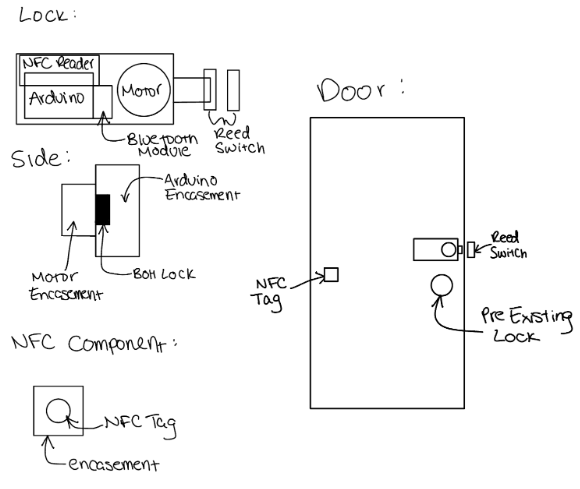 Lock:
NFC Reader
Arduino
Motor
Bluetooth
Module
Reed
Switch
Side:
Arduino
Encasement
Motor
Encasement
Bolt Lock
NFC Component:
NFC Tag
encasement
Door:
Reed
Switch
NFC
Tag
Pre Existing
Lock